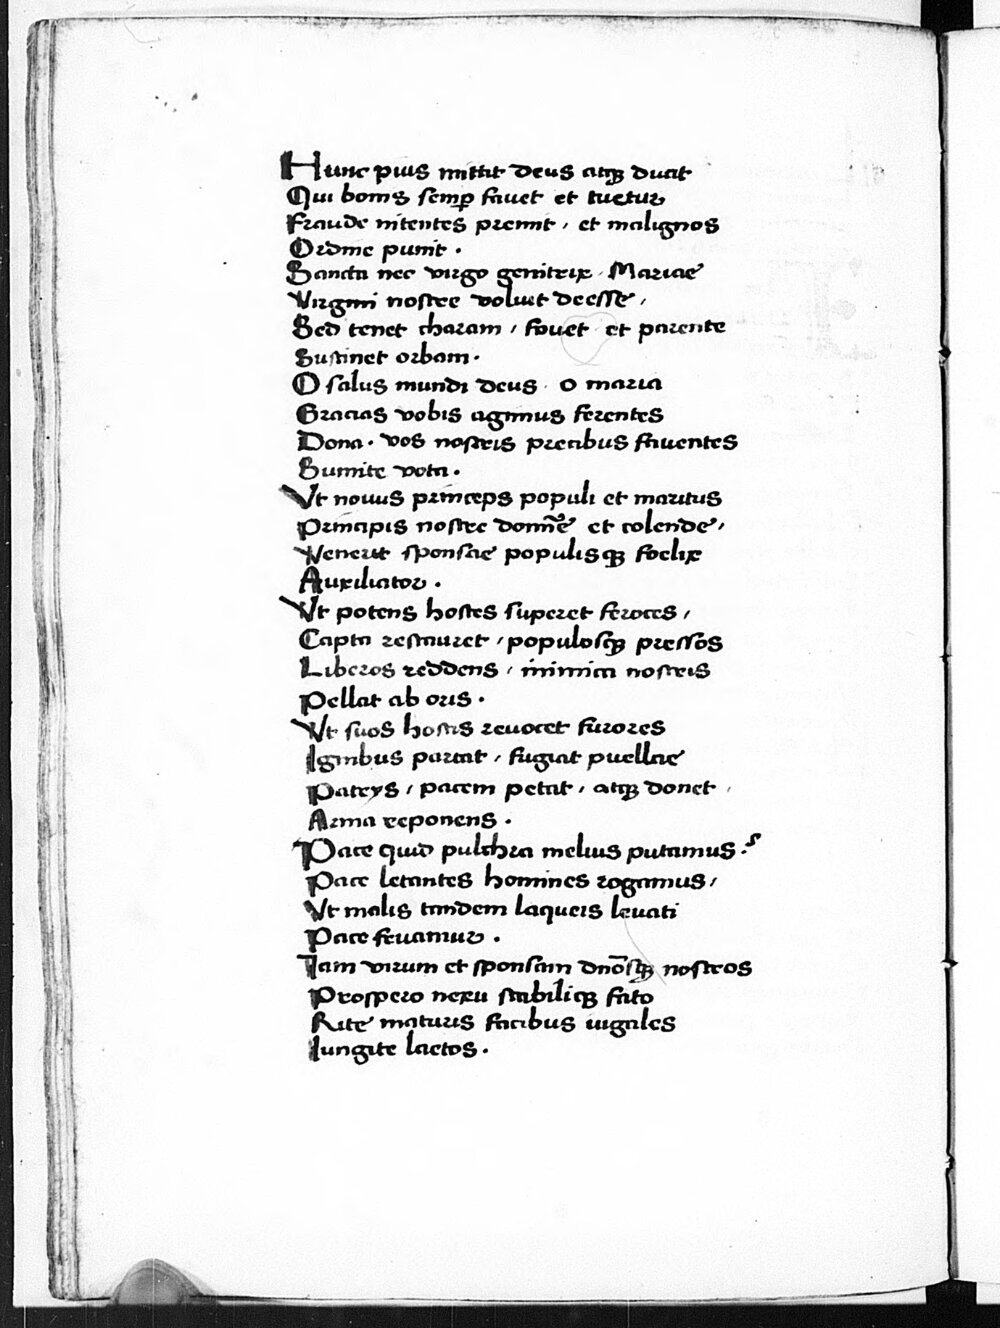 Hunc pius mittit deus atqꝫ ducit
Qui bonis semꝑ fauet et tuetur
Fraude nitentes premit, et malignos
Ordine punit.
Sancta nec virgo genitrix Mariae
Virgini nostre voluit deesse,
Sed tenet charam, fouet et parente
Sustinet orbam.
O salus mundi deus o maria
Gracias vobis agimus ferentes
Dona. vos nostris precibus fauentes
Sumite vota.
Vt nouus princeps populi et maritus
Principis nostre domīe et colende,
Venerit sponsae populisqꝫ foelix
Auxiliator.
Vt potens hostes superet feroces,
Capta restauret, populosqꝫ pressos
Liberos reddens, inimica nostris
Pellat ab oris.
Vt suos hostis reuocet furores
Ignibus parcat, fugiat puellae
Patrys, pacem petat, atqꝫ donet
Arma reponens.
Pace quid pulchra melius putamus?
Pace letantes homines rogamus,
Vt malis tandem laqueis leuati
Pace feuamur.
Iam virum et sponsam dnōsqꝫ nostros
Prospero nexu stabiliqꝫ fato
Rite maturis facibus iugales
Iungite laetos.